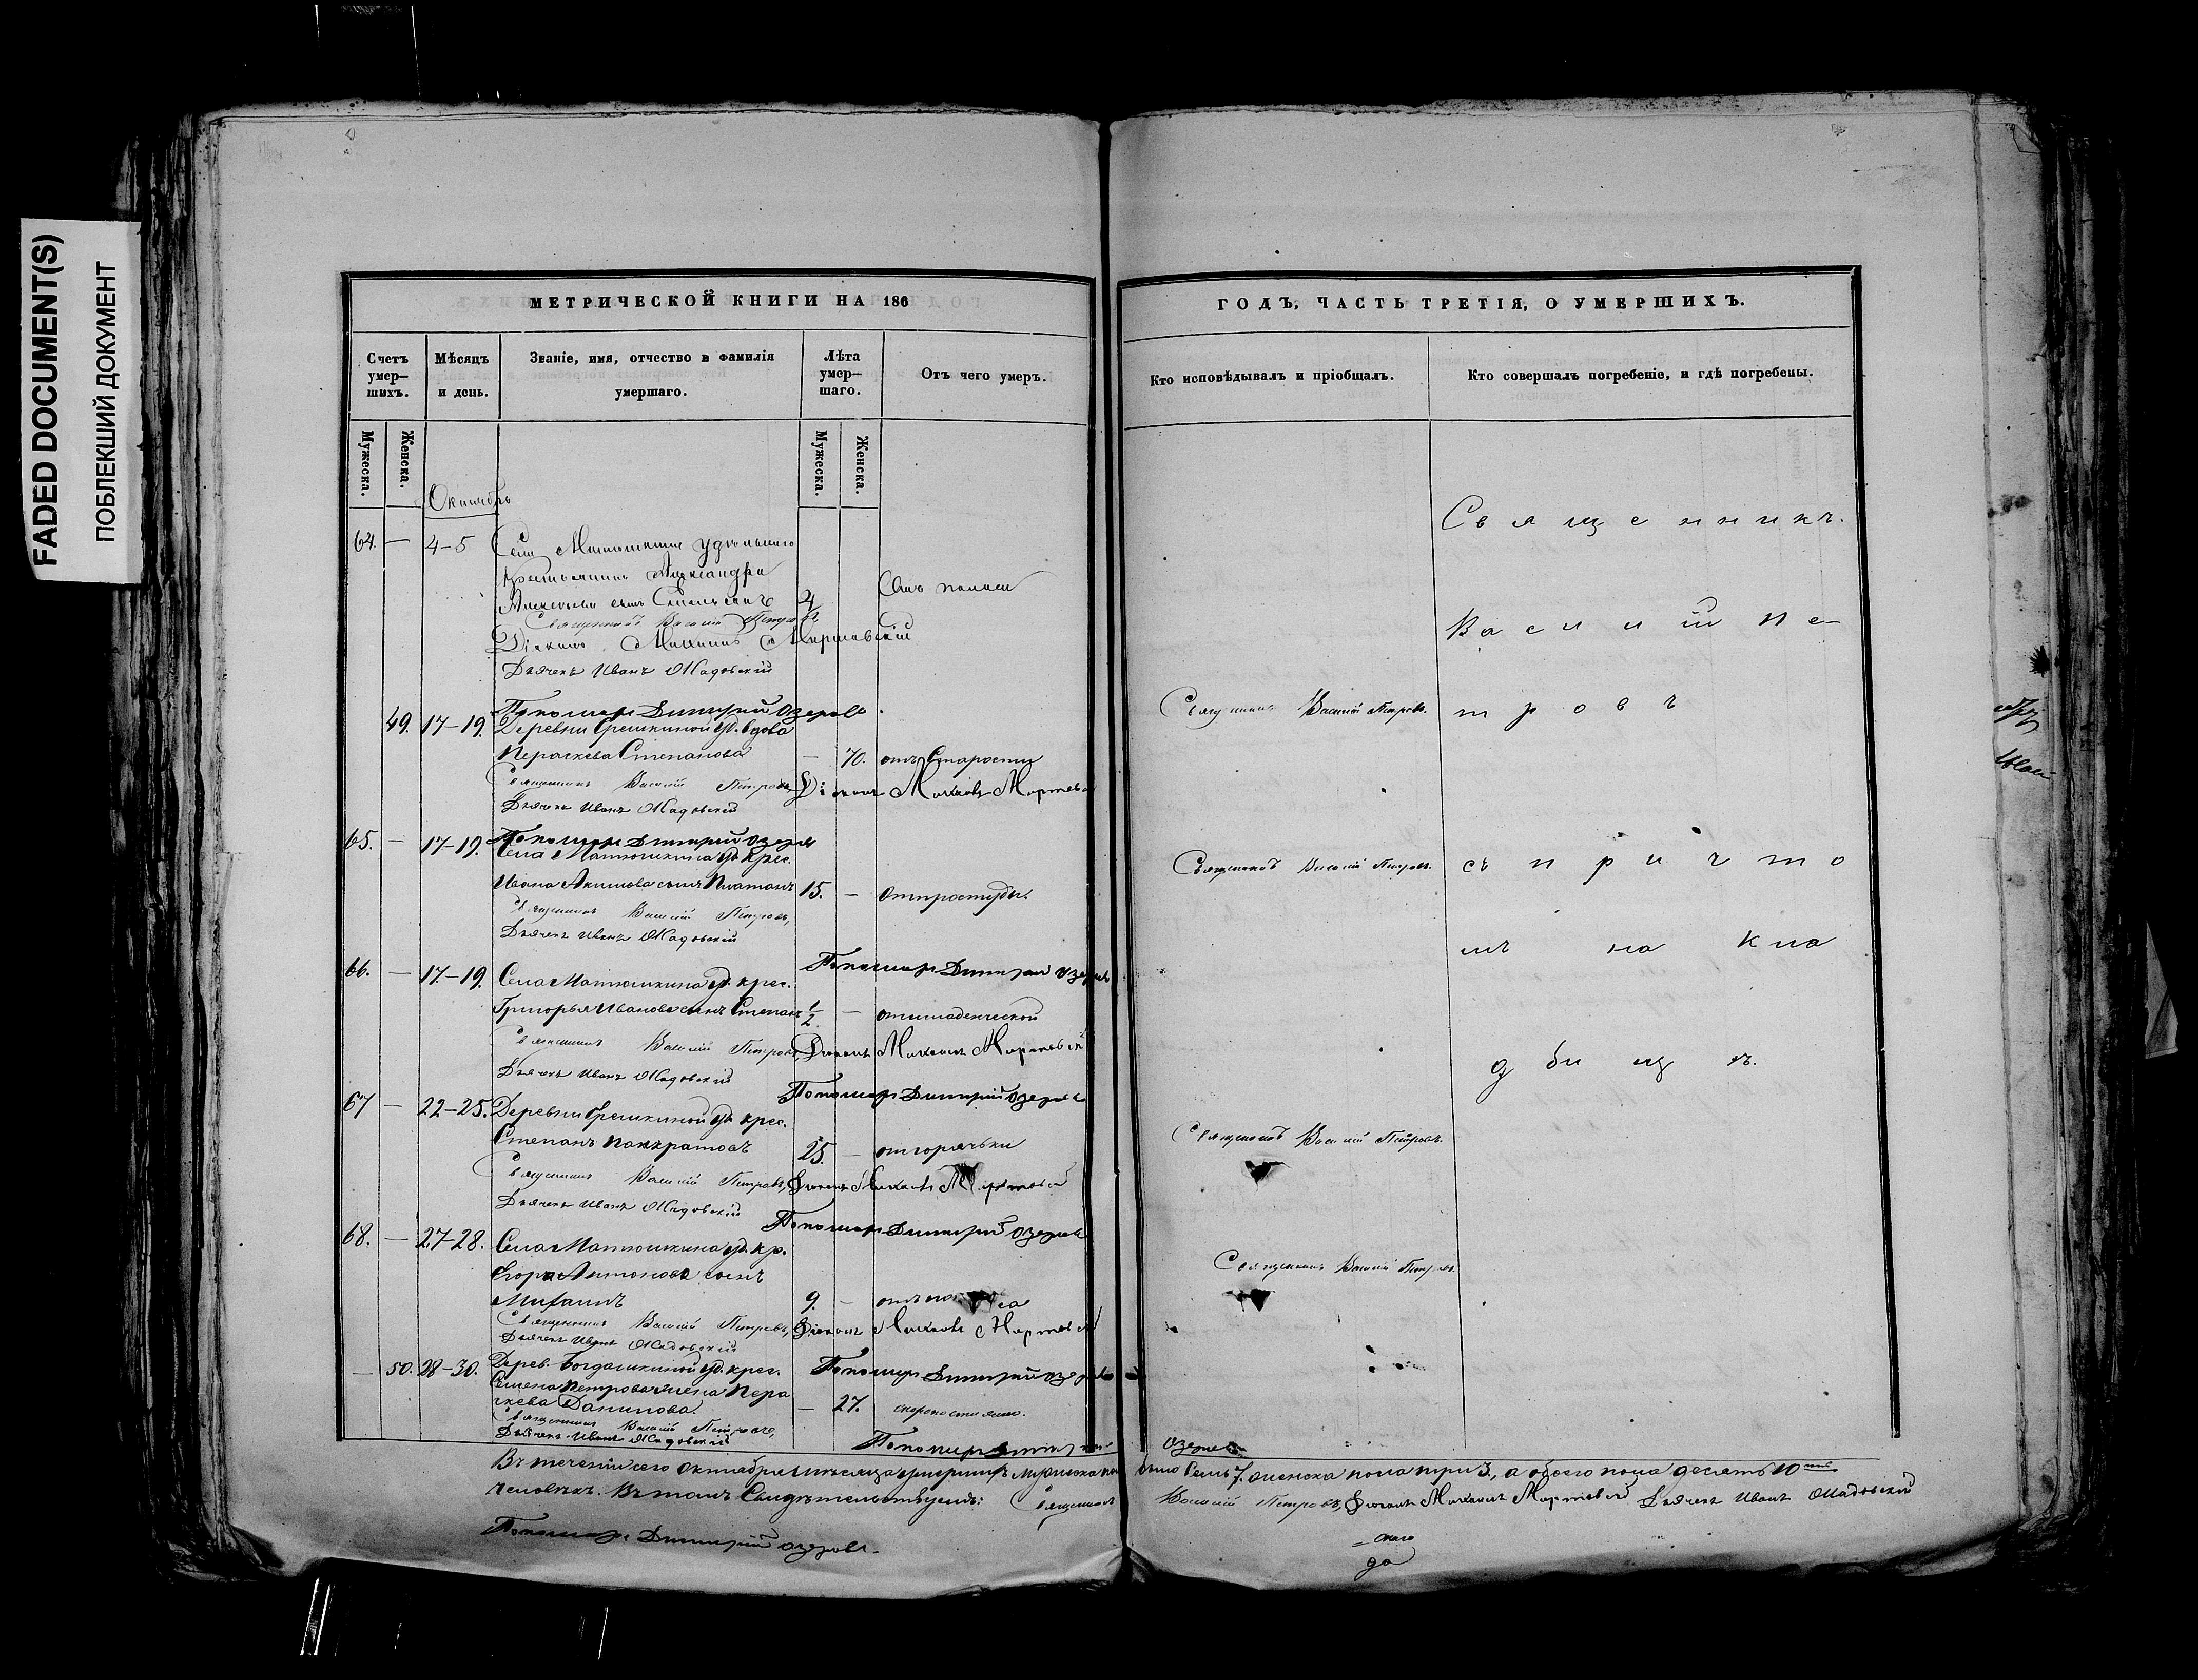 FADED DOCUMENT(S)
ПОБЛЕКШИЙ ДОКУМЕНТ
МЕТРИЧЕСКОЙ КНИГИ НА 186
Счетъ умер-шихъ.
Мѣсяцъ и день.
Званіе, имя, отчество и фамилія умершаго.
Лѣта умер-шаго.
Отъ чего умеръ.
Мужеска.
Женска.
Мужеска.
Женска.
Октябрь
64. — 4-5 Села Матюшкина удѣльнаго
крестьянина Александра
Алексѣева сынъ 4
Священникъ Василій Петровъ
Діаконъ Михаилъ
Дьячекъ Иванъ Жадовскій
Пономарь Димитрій Озеровъ.
49. 17-19. Деревни уд. вдова
Пераскева Степанова — 70. отъ Старости
Священникъ Василій Петровъ Діаконъ Михаилъ
Дьячекъ Иванъ Жадовскій
Пономарь Димитрій Озеровъ
65. — 17-19. Села Матюшкина уд. крес.
Ивана Акимова сынъ Платонъ 15. — отпростуды.
Священникъ Василій Петровъ,
Дьячекъ Иванъ Жадовскій
Пономарь Димитрій Озеровъ
66. — 17-19. Села Матюшкина уд. крес.
Григорья Иванова сынъ Степанъ 1/2. — отмладенческой
Священникъ Василій Петровъ, Діаконъ Михаилъ
Дьячекъ Иванъ Жадовскій
Пономарь Димитрій Озеровъ
67 — 22-25. Деревни уд. крес.
Степанъ Панкратовъ 25. — отгорячьки
Священникъ Василій Петровъ, Діаконъ Михаилъ
Дьячекъ Иванъ Жадовскій
Пономарь Димитрій Озеровъ
68. — 27-28. Села Матюшкина уд. кр.
Егора Антонова сынъ
Михаилъ 9. — отъ
Священникъ Василій Петровъ, Діаконъ Михаилъ
Дьячекъ Иванъ Жадовскій
Пономарь Димитрій Озеровъ
— 50. 28-30. Дерев. Богдашкиной уд. крес.
Семена Петрова жена Пера
скева Данилова. — 27. скоропостижно.
Священникъ Василій Петровъ,
Дьячекъ Иванъ Жадовскій
Пономарь Димитрій
Въ теченіи сего Октября мѣсяца умершихъ мужеска по
человѣкъ. Въ томъ Свидѣтельствуемъ: Священникъ
Пономарь Димитрій Озеровъ.
ГОДЪ, ЧАСТЬ ТРЕТІЯ, О УМЕРШИХЪ.
Кто исповѣдывалъ и пріобщалъ.
Кто совершалъ погребеніе, и гдѣ погребены.
Священникъ.
Василій Пе-
Священникъ Василій Петровъ. тровъ
Священникъ Василій Петровъ. съ причто
мъ на кла
дбищѣ.
Священникъ Василій Петровъ.
Священникъ Василій Петровъ.
Озеровъ
было Семь 7. женска пола три 3, а обоего пола десять 10
Василій Петровъ, Діаконъ Михаилъ Дьячекъ Иванъ Жадовскій
= скаго
да